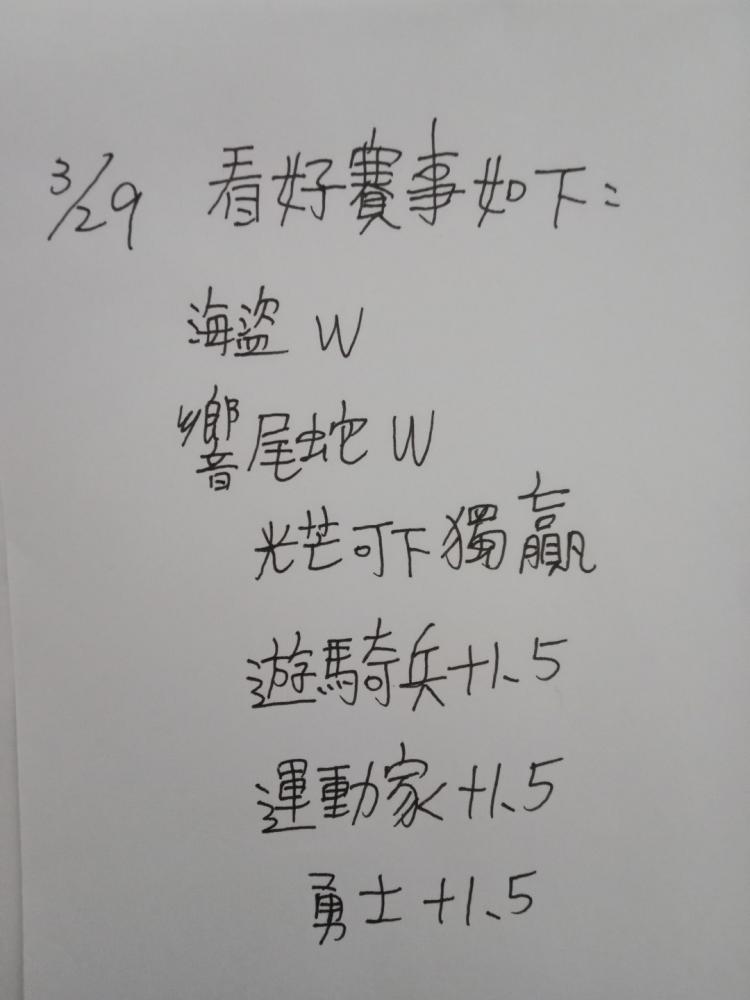 3/29 看好賽事如下:
海盜 W
響尾蛇 W
光芒可下獨贏
遊騎兵+1.5
運動家+1.5
勇士+1.5